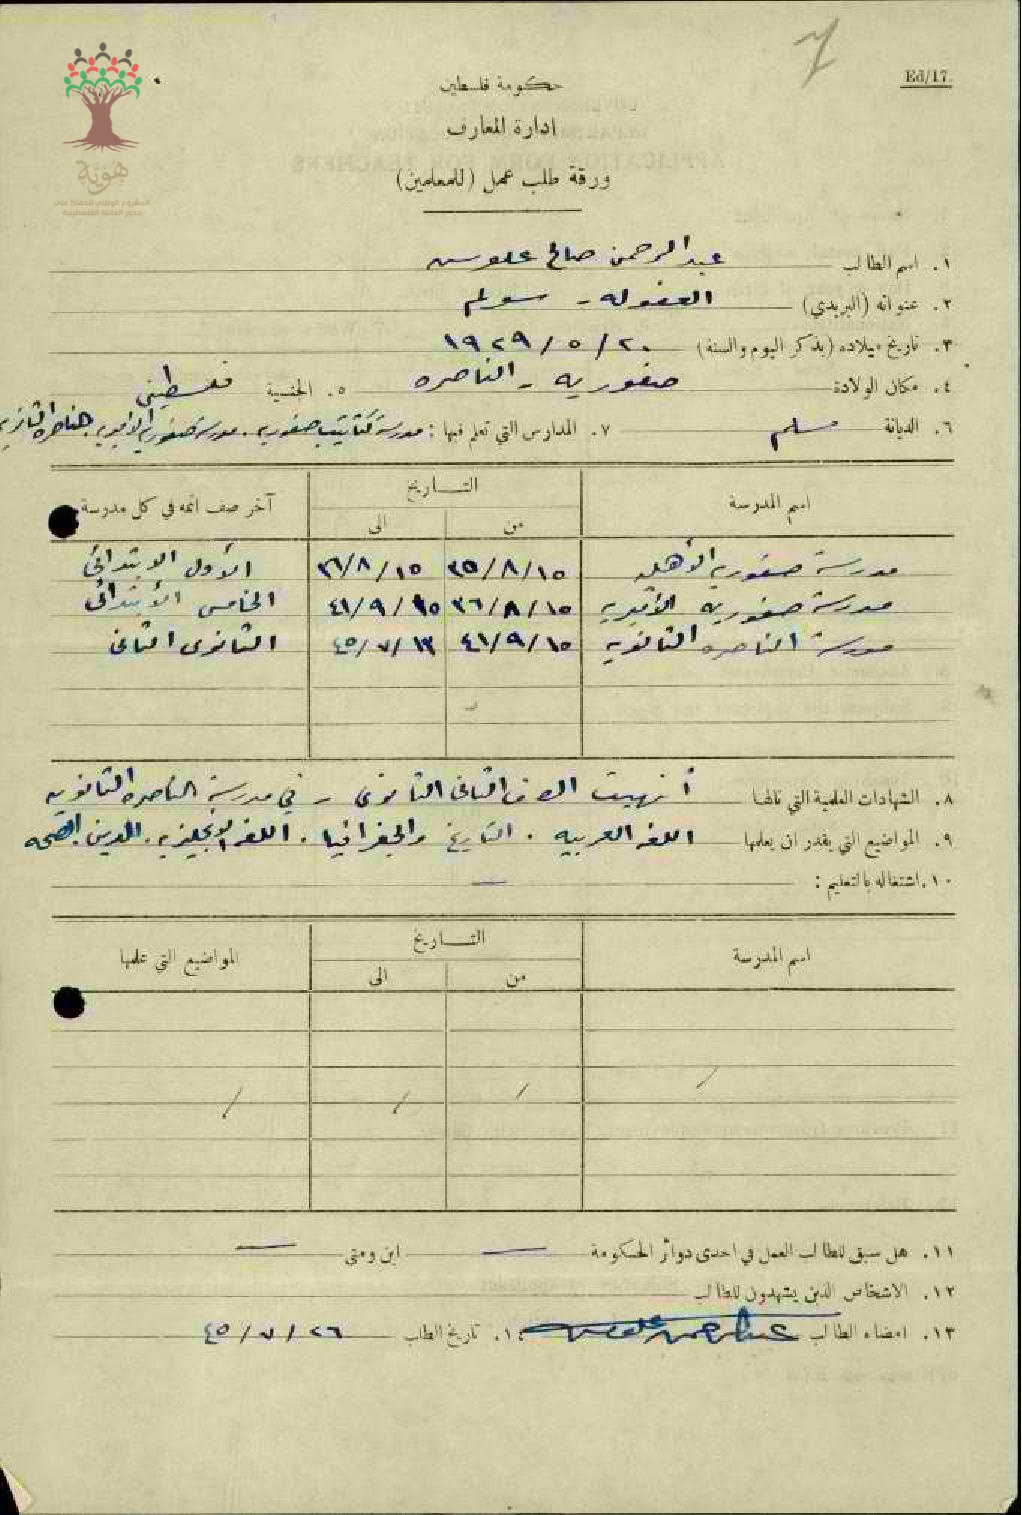 Ed/17.
حكومة فلسطين
ادارة المعارف
ورقة طلب عمل (للمعلمين)
هوية
المشروع الوطني للحفاظ على
جذور العائلة الفلسطينية
١. اسم الطالب عبد الرحمن صالح علوش
٢. عنوانه (البريدي) العفوله - سولم
٣. تاريخ ميلاده (يذكر اليوم والسنة) ٢٠ / ٥ / ١٩٢٩
٤. مكان الولادة صفوريه - الناصره ٥. الجنسية فلسطيني
٦. الديانة مسلم ٧. المدارس التي تعلم فيها : مدرسة كتاتيب صفوريه. مدرسة صفوريه الاميريه.
اسم المدرسة التــاريخ آخر صف اتمه في كل مدرسة
من الى
مدرسة صفوريه الأهليه ١٥/٨/٣٥ ١٥/٨/٣٦ الأول الابتدائي
مدرسة صفوريه الأميريه ١٥/٨/٣٦ ١٥/٩/٤١ الخامس الأبتدائي
مدرسة الناصره الثانويه ١٥/٩/٤١ ١٣/٧/٤٥ الثانوي الثاني
٨. الشهادات العلمية التي نالها أنهيت الصف الثاني الثانوي - في مدرسة الناصره الثانويه
٩. المواضيع التي يقدر ان يعلمها اللغه العربيه. التاريخ والجغرافيا. اللغه الانجليزيه. الدين. الصحه
١٠. اشتغاله بالتعليم : —
اسم المدرسة التــاريخ المواضيع التي علمها
من الى
/ / / /
١١. هل سبق للطالب العمل في احدى دوائر الحكومة — اين ومتى —
١٢. الاشخاص الذين يشهدون للطالب
١٣. امضاء الطالب عبد الرحمن علوش ١. تاريخ الطلب ٢٦ / ٧ / ٤٥